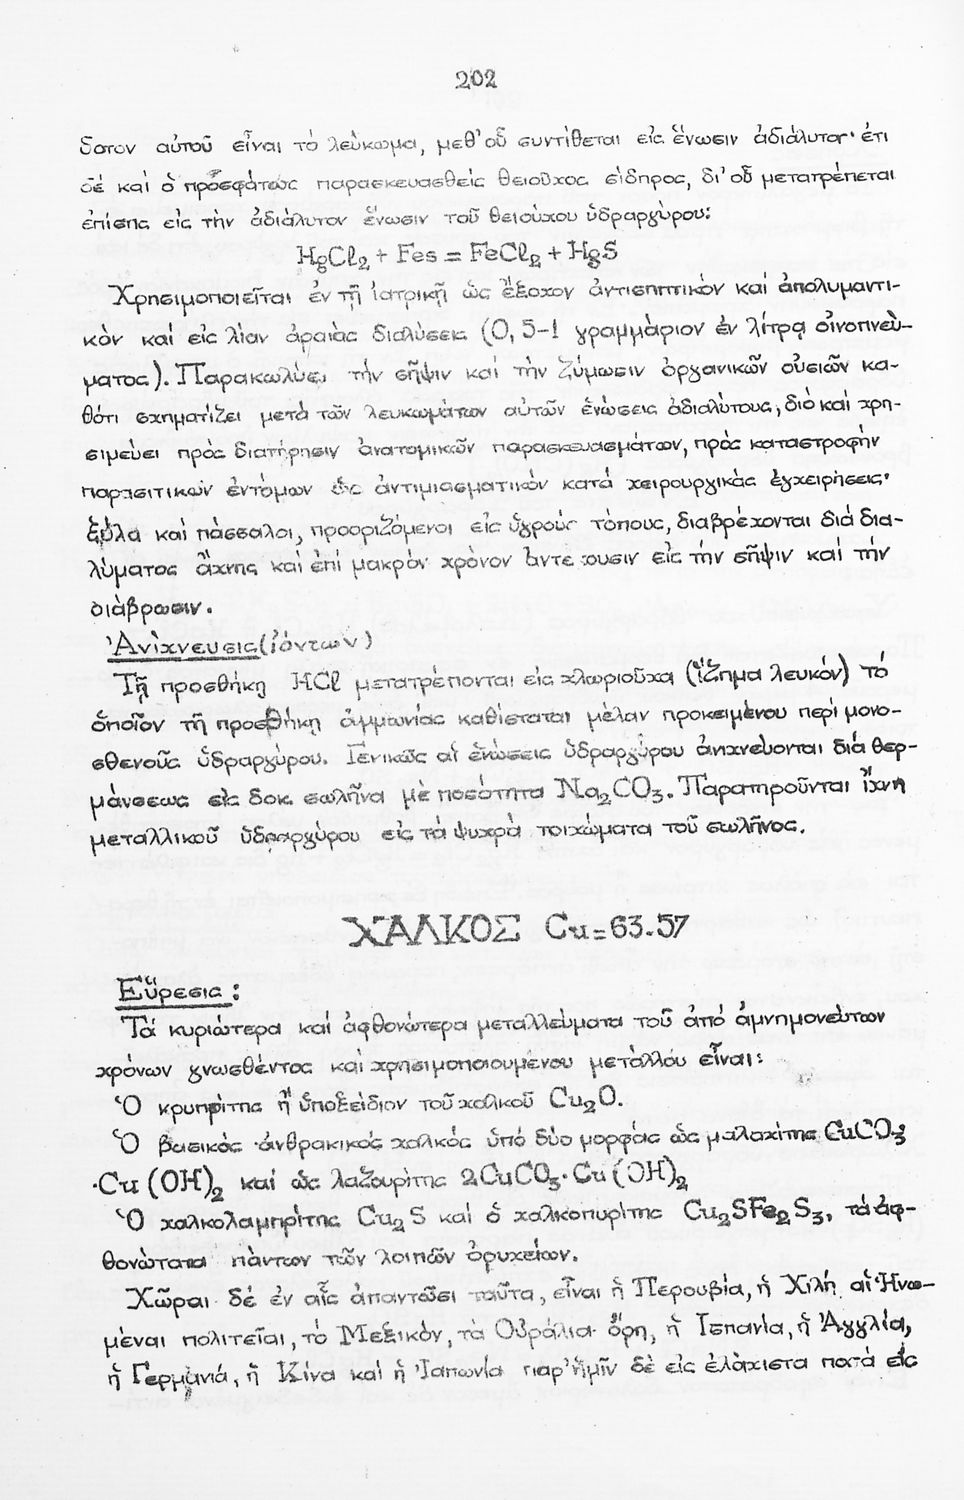 202
δοτον αὐτοῦ εἶναι τό λεύκωμα, μεθ' οὗ συντίθεται εἰς ἕνωσιν ἀδιάλυτον· ἔτι
δέ καί ὁ προσφάτως παρασκευασθείς θειοῦχος σίδηρος, δι' οὗ μετατρέπεται
ἐπίσης εἰς τήν ἀδιάλυτον ἕνωσιν τοῦ θειούχου ὑδραργύρου:
HgCl₂ + Fes = FeCl₂ + HgS
Χρησιμοποιεῖται ἐν τῇ ἰατρικῇ ὡς ἔξοχον ἀντισηπτικόν καί ἀπολυμαντι-
κόν καί εἰς λίαν ἀραιάς διαλύσεις (0,5-1 γραμμάριον ἐν λίτρᾳ οἰνοπνεύ-
ματος). Παρακωλύει τήν σῆψιν καί τήν ζύμωσιν ὀργανικῶν οὐσιῶν κα-
θότι σχηματίζει μετά τῶν λευκωμάτων αὐτῶν ἑνώσεις ἀδιαλύτους, διό καί χρη-
σιμεύει πρός διατήρησιν ἀνατομικῶν παρασκευασμάτων, πρός καταστροφήν
παρασιτικῶν ἐντόμων ὡς ἀντιμιασματικόν κατά χειρουργικάς ἐγχειρήσεις·
ξύλα καί πάσσαλοι, προοριζόμενοι εἰς ὑγρούς τόπους, διαβρέχονται διά δια-
λύματος ἄχνης καί ἐπί μακρόν χρόνον ἀντέχουσιν εἰς τήν σῆψιν καί τήν
διάβρωσιν.
Ἀνίχνευσις (ἰόντων)
Τῇ προσθήκῃ HCl μετατρέπονται εἰς χλωριοῦχα (ἵζημα λευκόν) τό
ὁποῖον τῇ προσθήκῃ ἀμμωνίας καθίσταται μέλαν προκειμένου περί μονο-
σθενοῦς ὑδραργύρου. Γενικῶς αἱ ἑνώσεις ὑδραργύρου ἀνιχνεύονται διά θερ-
μάνσεως εἰς δοκ. σωλῆνα μέ ποσότητα Na₂CO₃. Παρατηροῦνται ἴχνη
μεταλλικοῦ ὑδραργύρου εἰς τά ψυχρά τοιχώματα τοῦ σωλῆνος.
ΧΑΛΚΟΣ Cu=63.57
Εὕρεσις:
Τά κυριώτερα καί ἀφθονώτερα μεταλλεύματα τοῦ ἀπό ἀμνημονεύτων
χρόνων γνωσθέντος καί χρησιμοποιουμένου μετάλλου εἶναι:
Ὁ κρυπρίτης ἤ ὑποξείδιον τοῦ χαλκοῦ Cu₂O.
Ὁ βασικός ἀνθρακικός χαλκός ὑπό δύο μορφάς ὡς μαλαχίτης CuCO₃
·Cu(OH)₂ καί ὡς λαζουρίτης 2CuCO₃·Cu(OH)₂
Ὁ χαλκολαμπρίτης Cu₂S καί ὁ χαλκοπυρίτης Cu₂SFe₂S₃, τά ἀφ-
θονώτατα πάντων τῶν λοιπῶν ὀρυχείων.
Χῶραι δέ ἐν αἷς ἀπαντῶσι ταῦτα, εἶναι ἡ Περουβία, ἡ Χιλή, αἱ Ἡνω-
μέναι πολιτεῖαι, τό Μεξικόν, τά Οὐράλια ὄρη, ἡ Ἱσπανία, ἡ Ἀγγλία,
ἡ Γερμανία, ἡ Κίνα καί ἡ Ἰαπωνία παρ' ἡμῖν δέ εἰς ἐλάχιστα ποσά εἰς